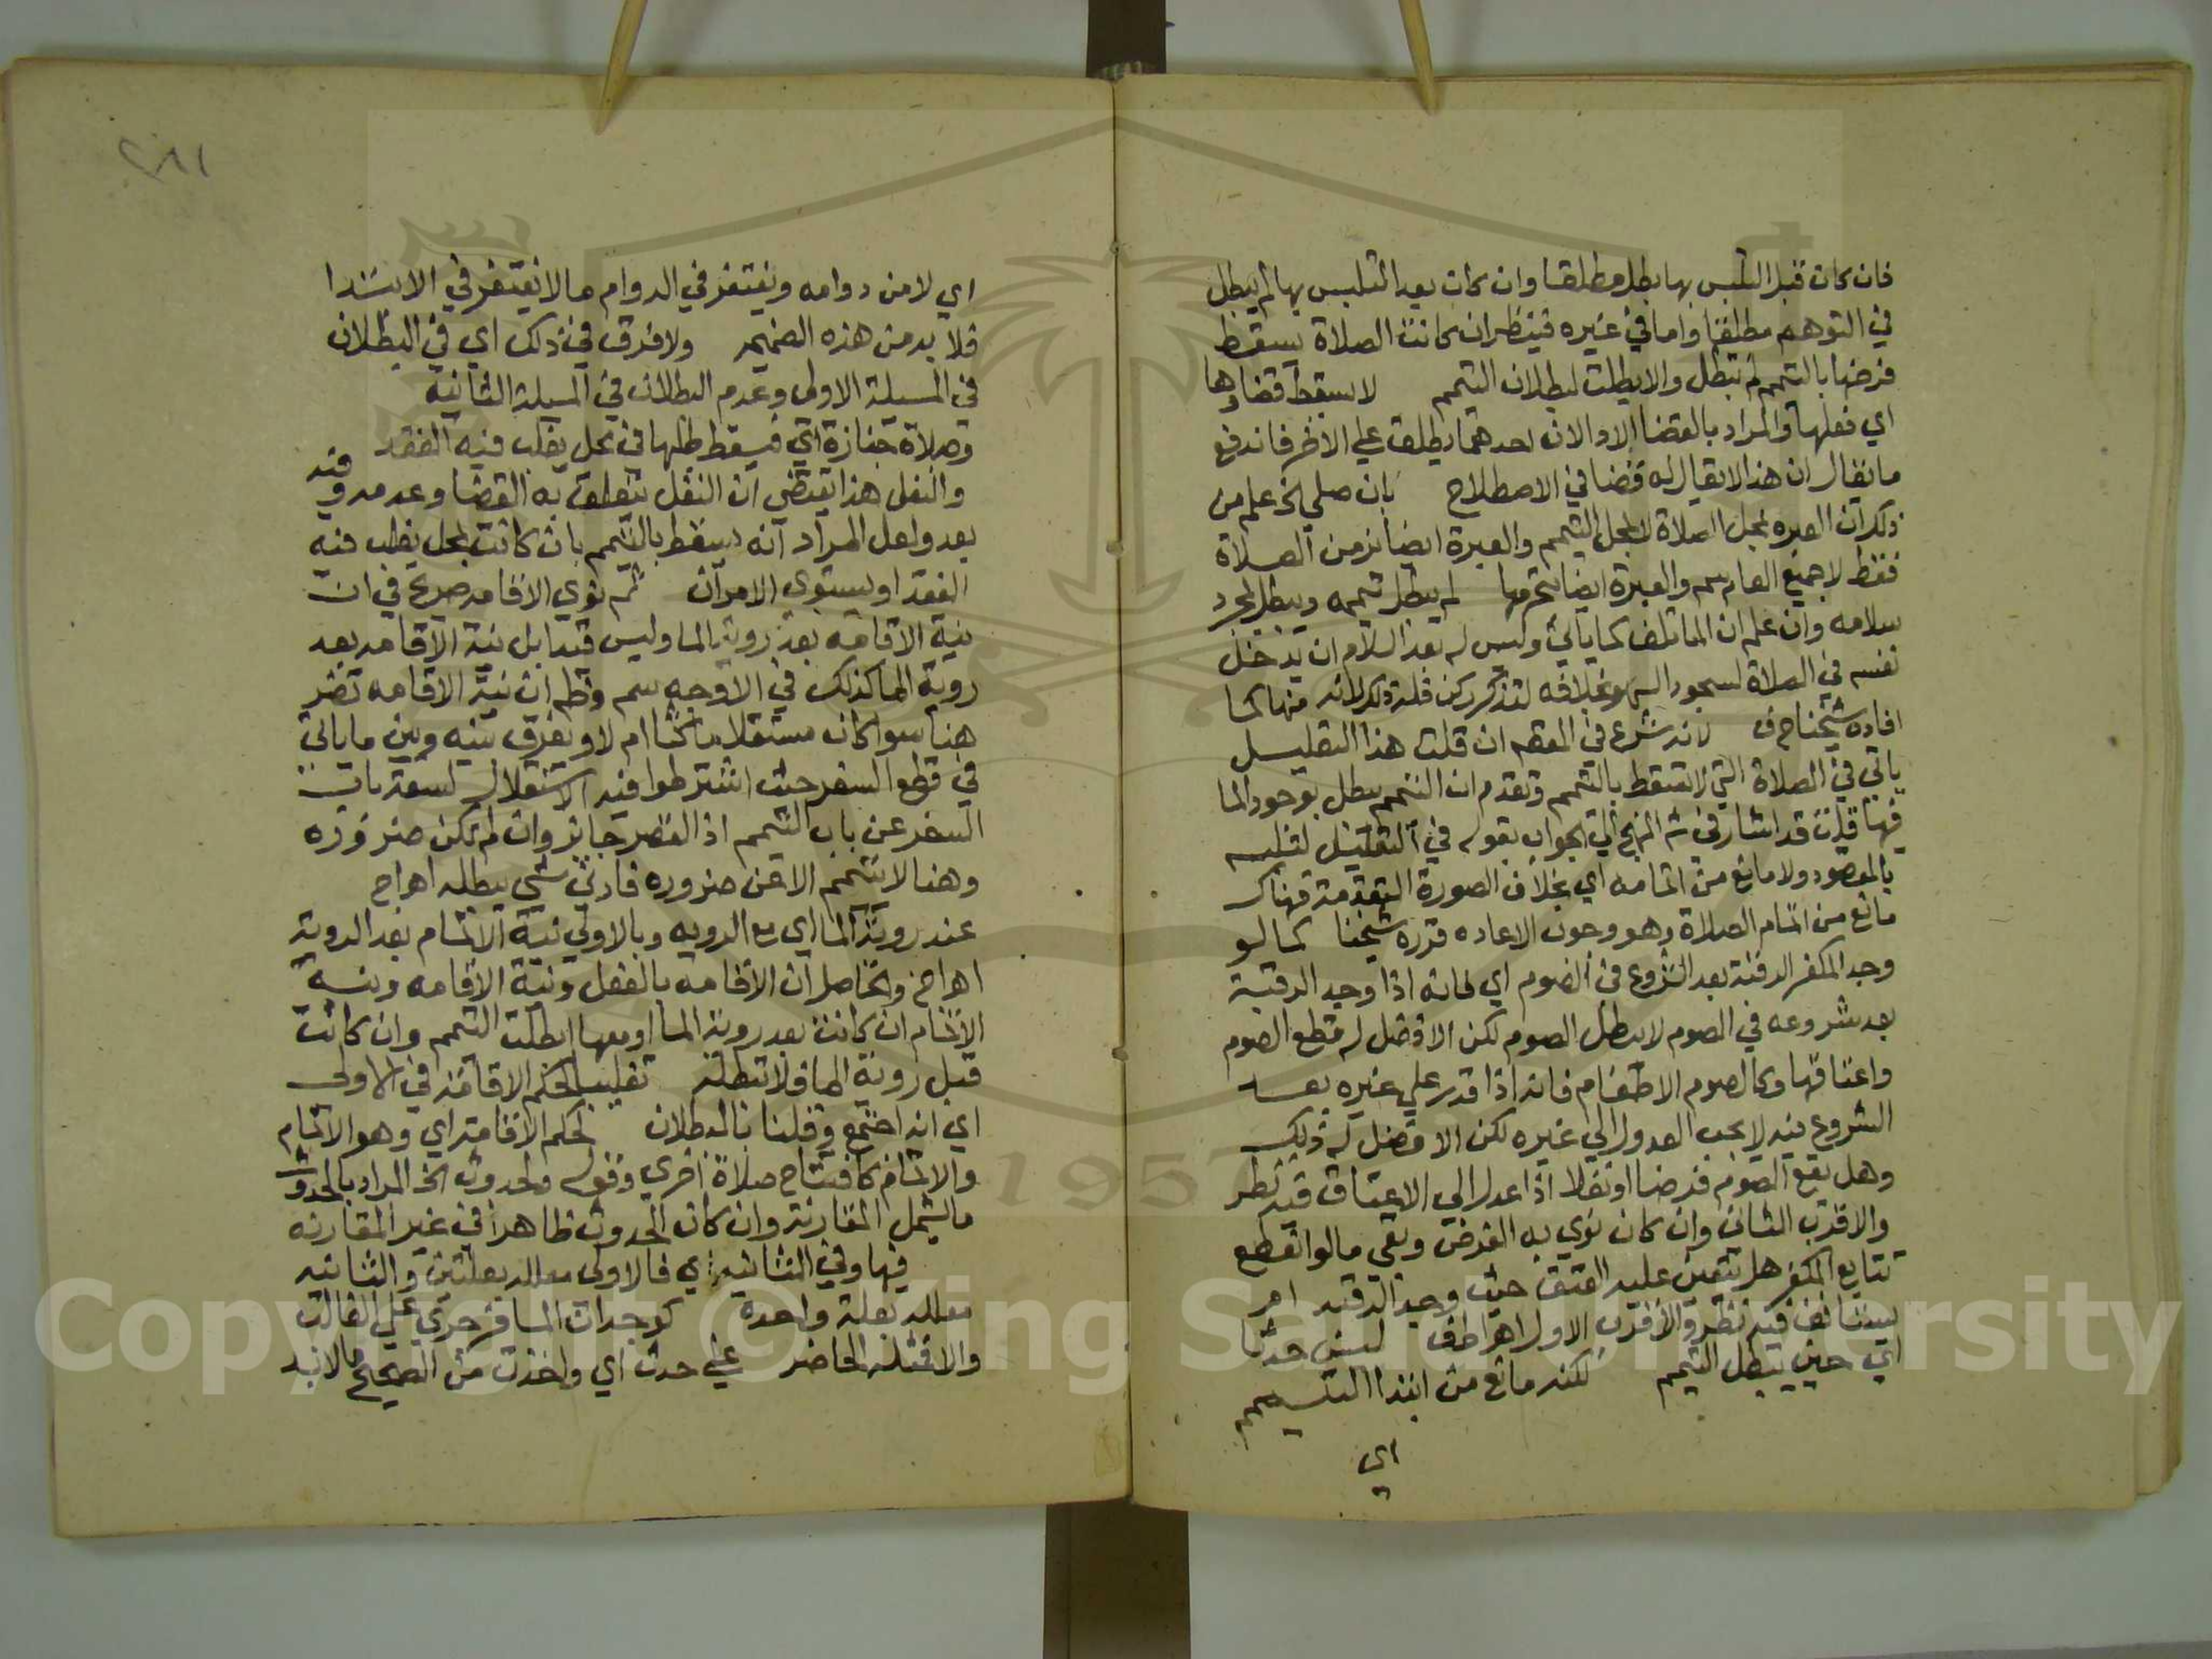 فان كان قبل التلبس بها بطل مطلقا وان كان بعد التلبس بها لم يبطل
في التوهم مطلقا واما في غيره فينظر ان كانت الصلاة يسقط
فرضها بالتيمم لم تبطل والا بطلت لبطلان التيمم لا يسقط قضاوها
اي فعلها والمراد بالقضا الادا لان احدهما يطلق علي الاخر فاندفع
ما يقال ان هذا لا يقال له قضا في الاصطلاح بان صلي الخ علم من
ذلك ان العبره بمحل الصلاة لا بمحل التيمم والعبرة ايضا بزمن الصلاة
فقط لا جميع العام سم والعبرة ايضا بتحرمها لم يبطل تيممه ويبطل بمجرد
سلامه وان علم ان الما تلف كما ياتي وليس له بعد السلام ان يدخل
نفسه في الصلاة لسجود السهو بخلافه لتذكر ركن فله ذلك لانه منها كما
افاده شيخنا ح ف لانه شرع في المقصود ان قلت هذا التعليل
ياتي في الصلاة التي لا تسقط بالتيمم وتقدم ان التيمم يبطل بوجود الما
فيها قلت قد اشار في شرح المنهج الي الجواب بقوله في التعليل لتلبسه
بالمقصود ولا مانع من اتمامه اي بخلاف الصورة المتقدمة فهناك
مانع من اتمام الصلاة وهو وجوب الاعاده قرره شيخنا كما لو
وجد المكفر الرقبة بعد الشروع في الصوم اي فانه اذا وجد الرقبة
بعد شروعه في الصوم لا يبطل الصوم لكن الافضل له قطع الصوم
واعتاقها وكالصوم الاطعام فانه اذا قدر علي غيره بعد
الشروع فيه لا يجب العدول الي غيره لكن الافضل له ذلك
وهل يقع الصوم فرضا او نفلا اذا عدل الي الاعتاق فيه نظر
والاقرب الثاني وان كان نوي به الفرض وبقي ما لو انقطع
تتابع المكفر هل يتعين عليه العتق حيث وجد الرقبه ام
يستانف فيه نظر والاقرب الاول اه اطف ليس حدثا
اي حين يبطل التيمم لكنه مانع من ابتدا التيمم
اي
٢٨١
اي لا من دوامه ويغتفر في الدوام ما لا يغتفر في الابتدا
فلا بد من هذه الضميمه ولا فرق في ذلك اي في البطلان
في المسيلة الاولي وعدم البطلان في المسيلة الثانيه
وصلاة جنازة اي فيسقط طلبها في محل يغلب فيه الفقد
والنفل هذا يقتضي ان النفل يتعلق به القضا وعدمه وفيه
بعد ولعل المراد انه يسقط بالتيمم بان كانت بمحل يغلب فيه
الفقد او يستوي الامران ثم نوي الاقامه صريح في ان
نية الاقامه بعد روية الما وليس قيدا بل نية الاقامه بعد
روية الما كذلك في الاوجه سم وظم ان نية الاقامه تضر
هنا سوا كان مستقلا ماكثا ام لا ويفرق بينه وبين ما ياتي
في قطع السفر حيث اشترطوا فيه الاستقلال لسعة باب
السفر عن باب التيمم اذ القصر جايز وان لم تكن ضروره
وهنا لا يتيمم الا عن ضروره فادني شي يبطله اه اج
عند روية الما اي مع الرويه وبالاولي نية الاتمام بعد الروية
اه اج والحاصل ان الاقامه بالفعل ونية الاقامه ونية
الاتمام ان كانت بعد روية الما او معها ابطلت التيمم وان كانت
قبل روية الما فلا تبطله تغليبا لحكم الاقامة في الاولي
اي انه اجتمع وقلنا بالبطلان لحكم الاقامة اي وهو الاتمام
والاتمام كافتتاح صلاة اخري وقوله ولحدوث الخ المراد بالحدوث
ما يشمل المقارنة وان كان الحدوث ظاهرا في غير المقارنه
فيها وفي الثانيه اي فالاولي معلله بعلتين والثانيه
معلله بعلة واحدة كوجدان المسافر جري علي الغالب
والا فمثله الحاضر علي حدث اي واخذت من الصحيح ما لا بد